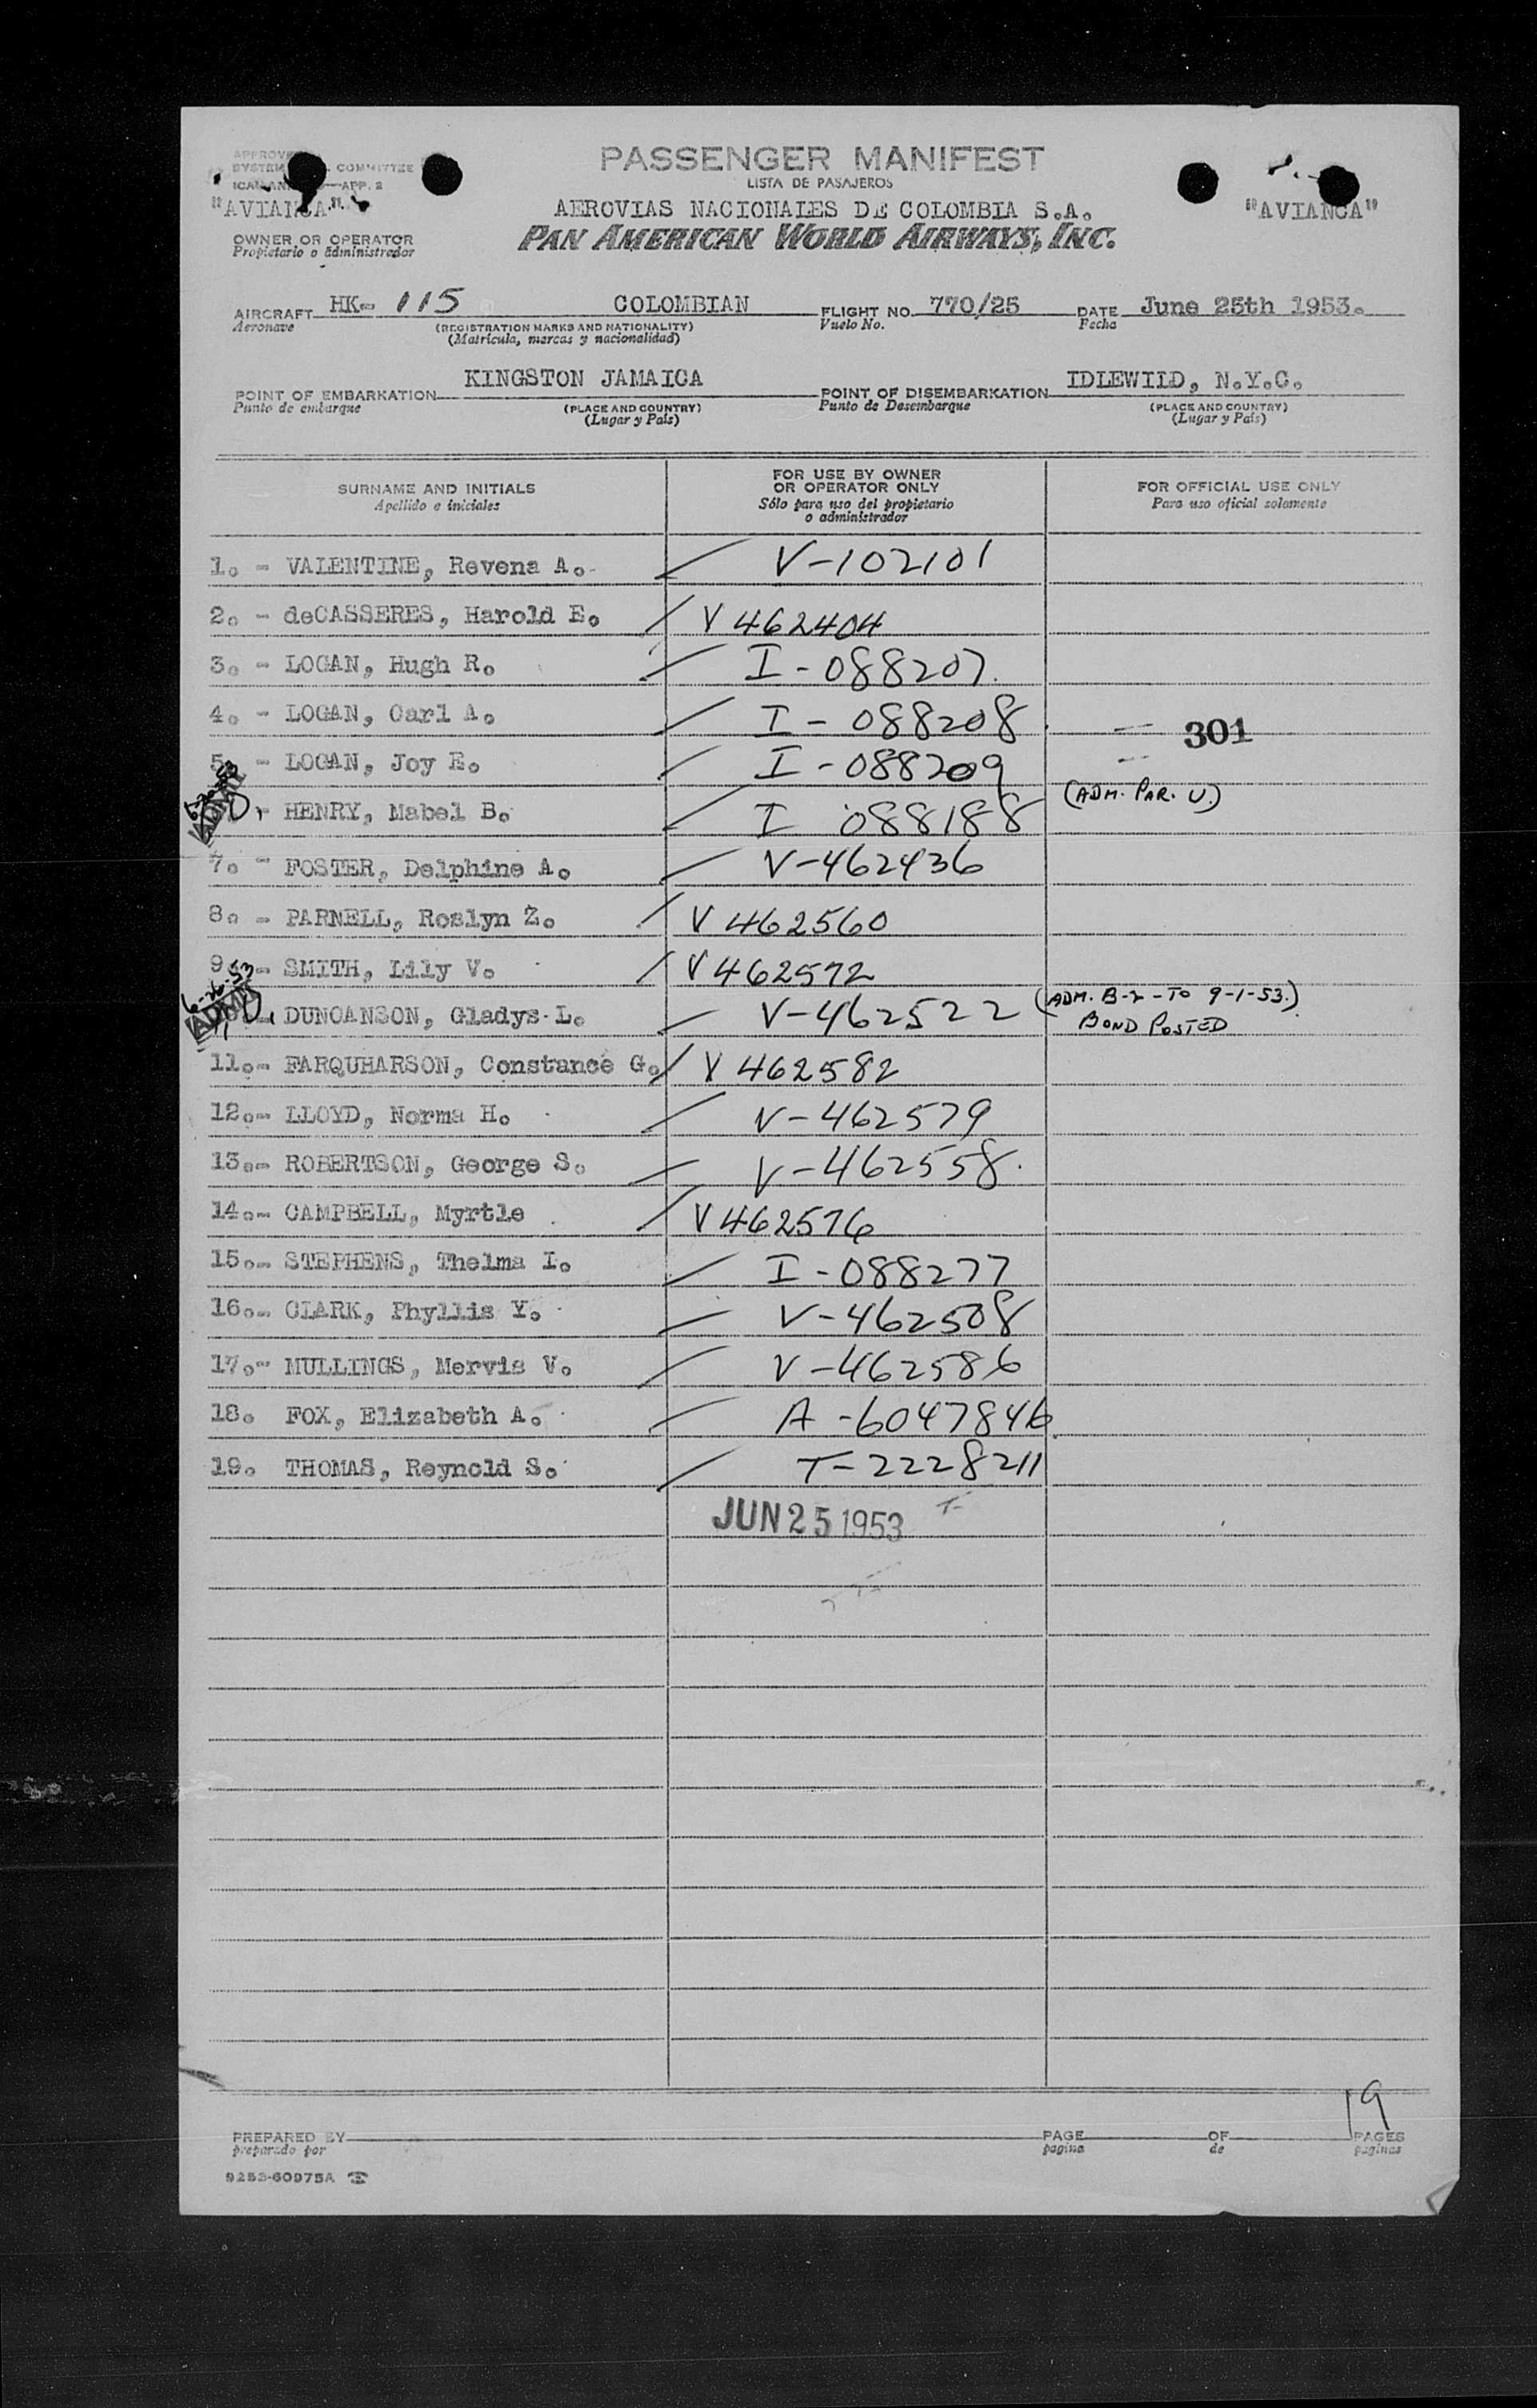 PASSENGER MANIFEST
LISTA DE PASAJEROS
COMMITTEE
APP. 2
"AVIANCA" AEROVIAS NACIONALES DE COLOMBIA S.A. "AVIANCA"
OWNER OR OPERATOR PAN AMERICAN WORLD AIRWAYS, INC.
Propietario o administrador
AIRCRAFT HK- 115 COLOMBIAN FLIGHT NO. 770/25 DATE June 25th 1953.
Aeronave (REGISTRATION MARKS AND NATIONALITY) Vuelo No. Fecha
(Matrícula, marcas y nacionalidad)
POINT OF EMBARKATION KINGSTON JAMAICA POINT OF DISEMBARKATION IDLEWILD, N.Y.C.
Punto de embarque (PLACE AND COUNTRY) Punto de Desembarque (PLACE AND COUNTRY)
(Lugar y País) (Lugar y País)
SURNAME AND INITIALS FOR USE BY OWNER OR OPERATOR ONLY FOR OFFICIAL USE ONLY
Apellido e iniciales Sólo para uso del propietario o administrador Para uso oficial solamente
1. - VALENTINE, Revena A. V-102101
2. - deCASSERES, Harold E. V 462404
3. - LOGAN, Hugh R. I-088207
4. - LOGAN, Carl A. I-088208 301
5. - LOGAN, Joy E. I-088209
- HENRY, Mabel B. I 088188 (ADM. PAR. U.)
7. - FOSTER, Delphine A. V-462436
8. - PARNELL, Roslyn Z. V 462560
9.- SMITH, Lily V. V 462572
6-26-53 ADMD
- DUNCANSON, Gladys L. V-462522 (ADM. B-2-TO 9-1-53.)
BOND POSTED
11.- FARQUHARSON, Constance G. V 462582
12.- LLOYD, Norma H. V-462579
13.- ROBERTSON, George S. V-462558
14.- CAMPBELL, Myrtle V 462576
15.- STEPHENS, Thelma I. I-088277
16.- CLARK, Phyllis Y. V-462508
17.- MULLINGS, Mervis V. V-462586
18. FOX, Elizabeth A. A-6047846
19. THOMAS, Reynold S. T-2228211
JUN 25 1953 T-
19
PREPARED BY PAGE OF PAGES
preparado por pagina de paginas
9253-60975A